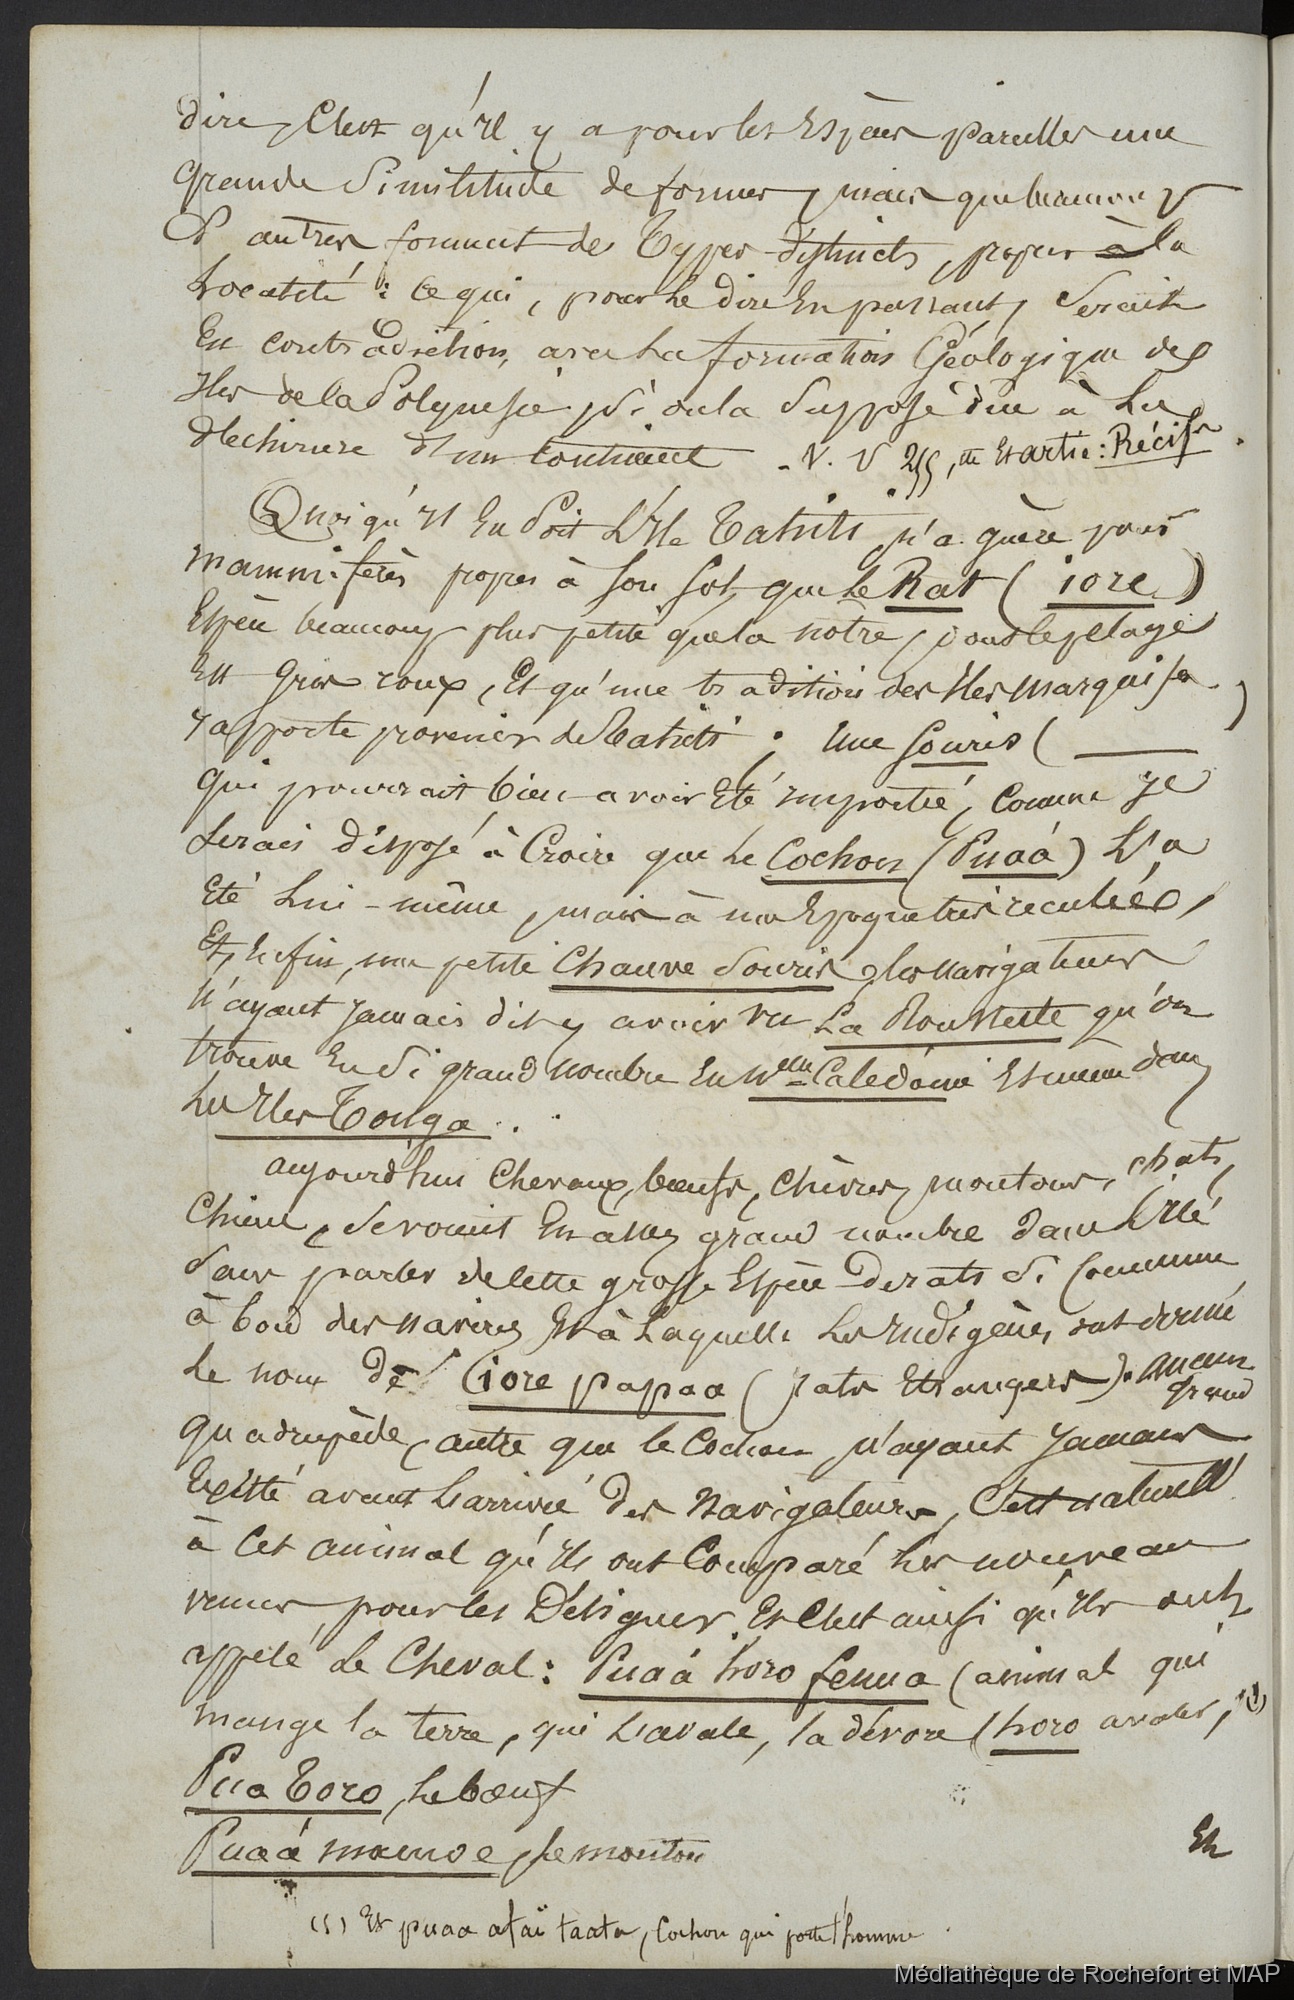 dire, C'est qu'il y a pour les Espèces pareilles une
grande Similitude de formes, mais que beaucoup
d'autres forment des Types distincts, propres à la
Localité : ce qui, pour le dire En passant, Serait
En contradiction, avec la formation Géologique des
Iles de la Polynésie, Si on la Suppose due à la
déchirure d'un Continent - V. V 255, et Article : Récifs.
Quoiqu'il En Soit L'Ile Tahiti n'a guère pour
mammifères propres à Son Sol, que le Rat (iore)
Espèce beaucoup plus petite que la notre, dont le pelage
Est Gris roux, Et qu'une tradition des Iles Marquises
rapporte provenir de Tahiti ; Une Souris ( )
qui pourrait bien avoir Eté importée, Comme je
Serais disposé à Croire que le Cochon (Puaá) L'a
Eté Lui-même, mais à une Epoque très reculée,
Et, Enfin, une petite Chauve Souris, les navigateurs
N'ayant jamais dit y avoir vu La Roussette qu'on
trouve En Si grand Nombre En Nelle Calédonie Et même dans
les Iles Tonga.
aujourd'hui Chevaux, bœufs, Chèvres, moutons, chats,
Chiens, Se voient En assez grand nombre dans L'Ile
Sans parler de cette grosse Espèce de rats Si Commune
à bord des navires Et à Laquelle les Indigènes ont donné
Le nom de (iore papaa (rats Etrangers). aucun
grand
quadrupède, autre que le Cochon n'ayant Jamais
Existé avant L'arrivée des Navigateurs, C'est naturell
à Cet animal qu'ils ont Comparé les nouveau
venus pour les Désigner. Et C'est ainsi qu'ils ont
appelé Le Cheval : Puaá horo fenua (animal qui
mange la terre, qui L'avale, la dévore (horo avaler, (1)
Puaa Toro, Le bœuf
Puaá mamoe, Le mouton
En
(1) Et puaa afaï taata, Cochon qui porte l'homme
Médiathèque de Rochefort et MAP